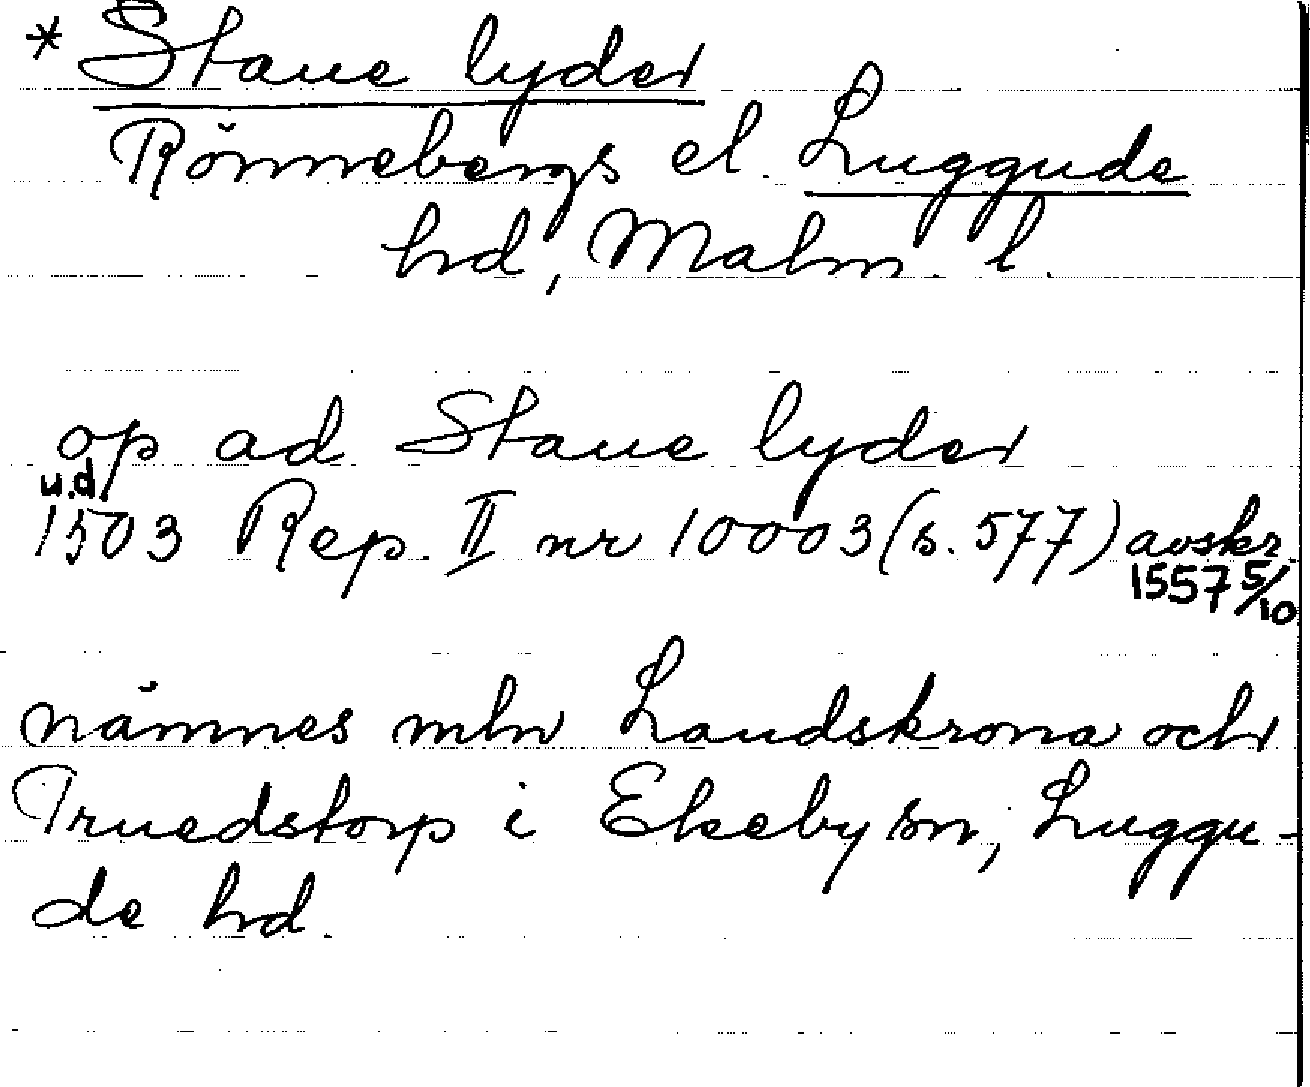 * Staue lyder
Rönnebergs el. Luggude
hd, Malm. l.
op ad Staue lyder
u.d.
1503 Rep. II nr 10003 (s. 577) avskr.
1557 5/10
nämnes mln Landskrona och
Truedstorp i Ekeby sn, Luggu-
de hd.